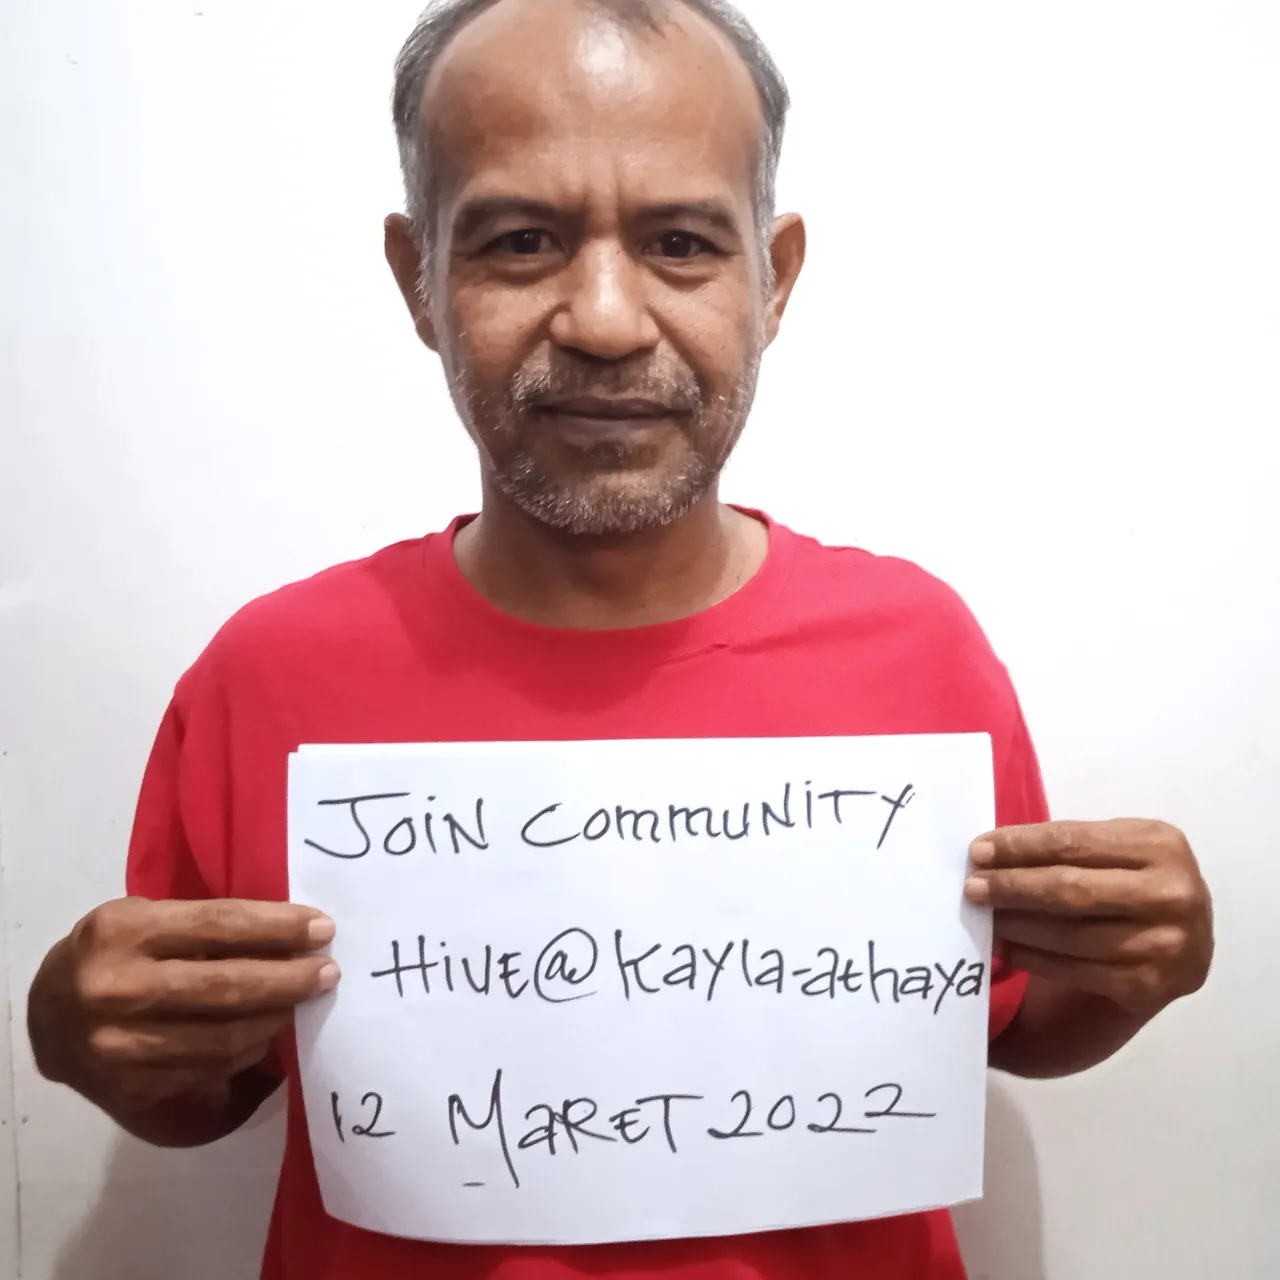 JOiN COMMUNITY
HiVE@kayla-athaya
12 MaRET 2022